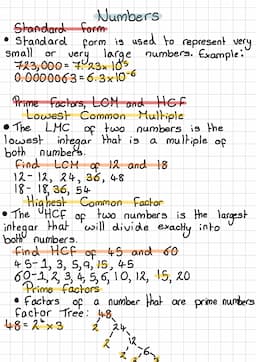 Numbers
Standard Form
• Standard form is used to represent very
small or very large numbers. Example:
723,000 = 7.23x10⁵
0.0000063 = 6.3x10⁻⁶
Prime Factors, LCM and HCF
Lowest Common Multiple
• The LMC of two numbers is the
lowest integar that is a multiple of
both numbers.
Find LCM of 12 and 18
12- 12, 24, 36, 48
18- 18, 36, 54
Highest Common Factor
• The HCF of two numbers is the largest
integar that will divide exactly into
both numbers.
Find HCF of 45 and 60
45-1, 3, 5, 9, 15, 45
60-1, 2, 3, 4, 5, 6, 10, 12, 15, 20
Prime factors
• factors of a number that are prime numbers
Factor Tree: 48
48 = 2⁴ x 3
2 24
2 12
2 6